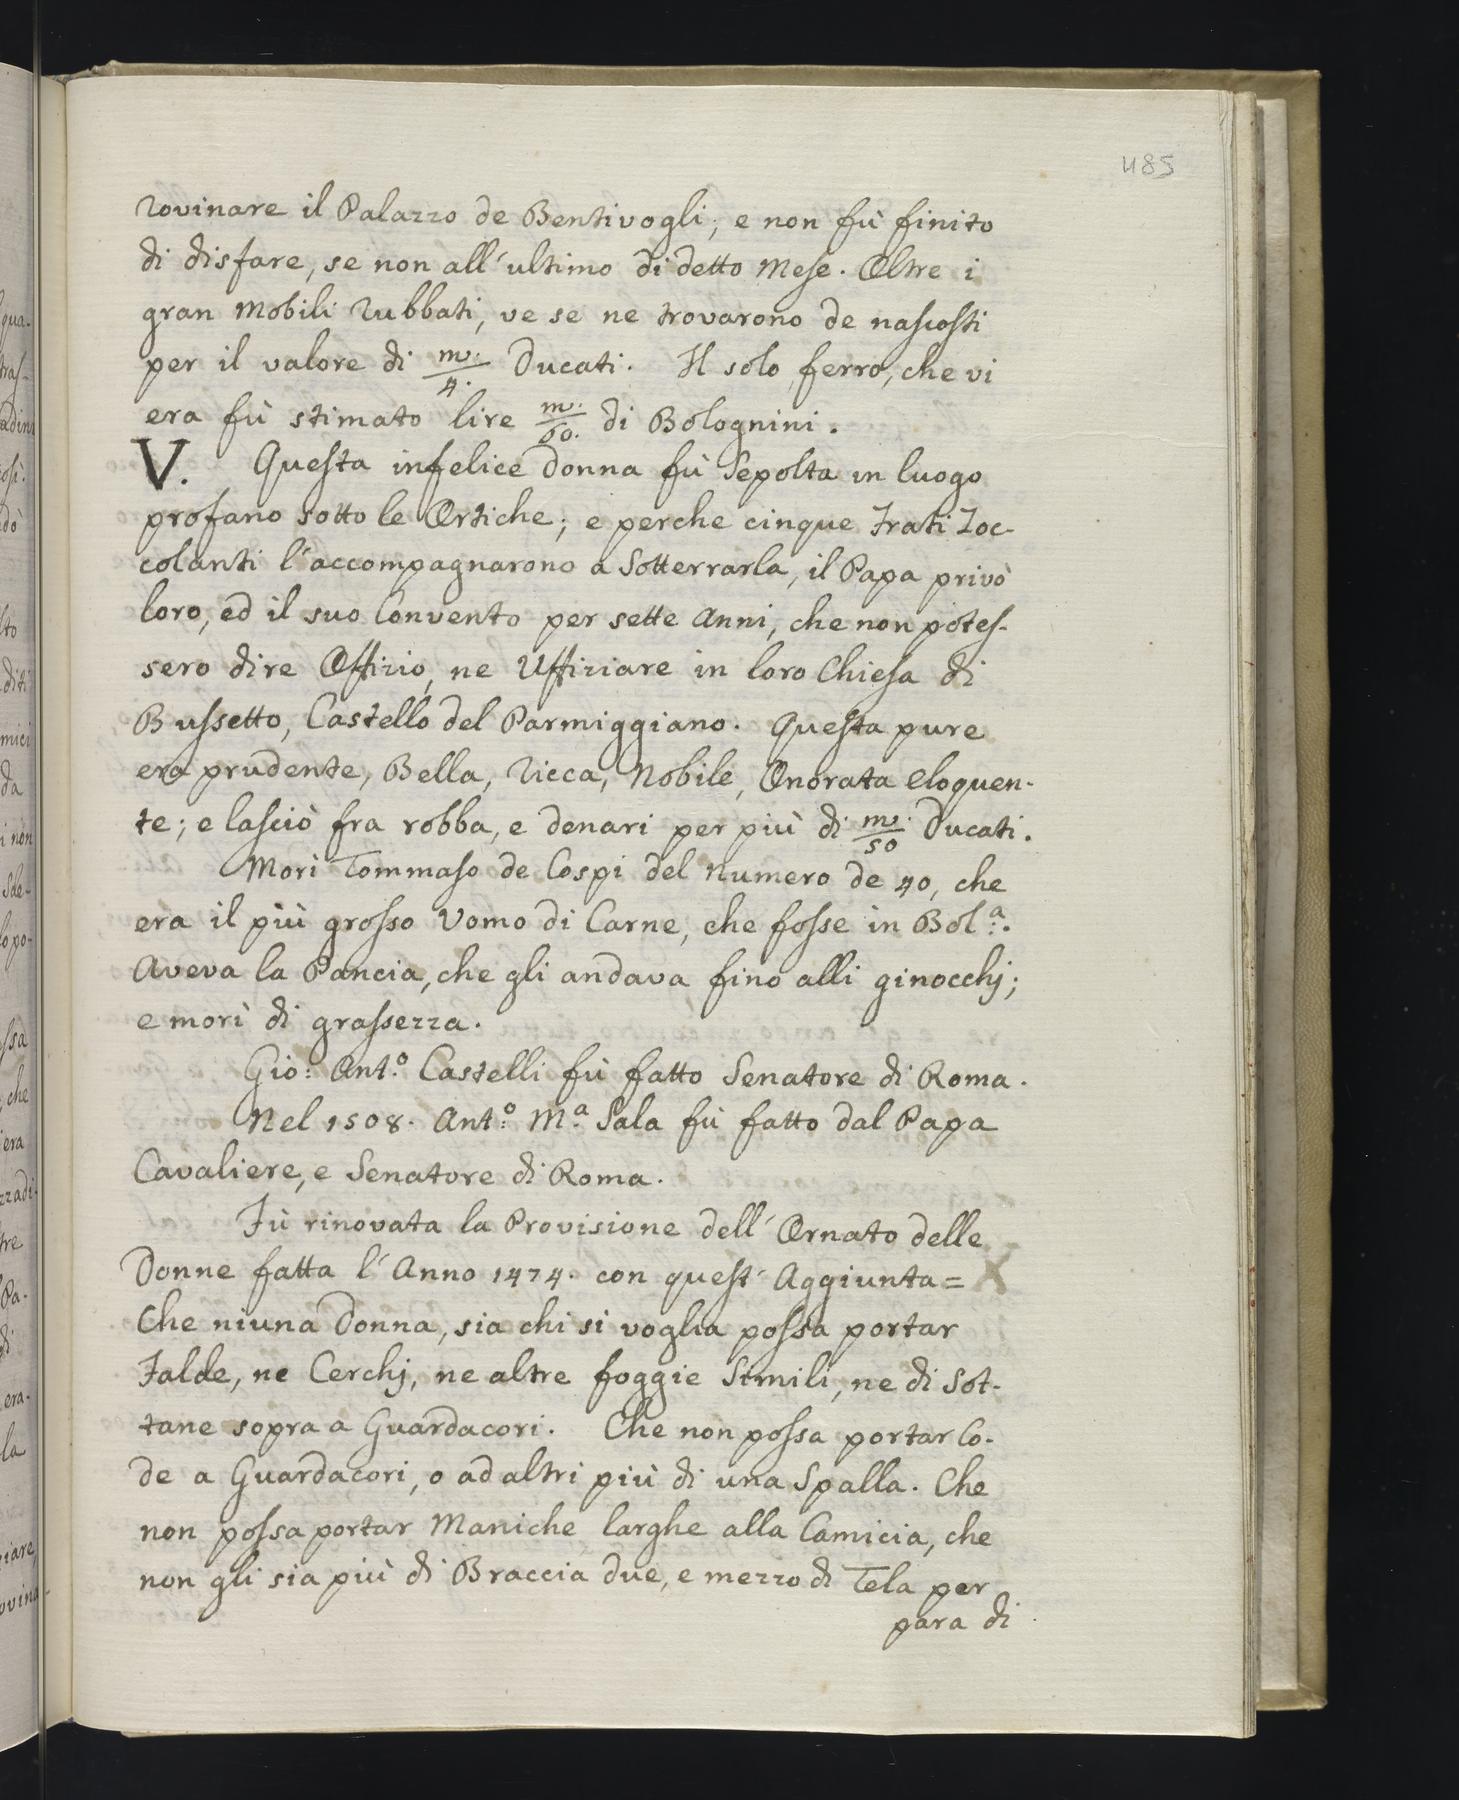 485
rovinare il Palazzo de Bentivogli; e non fù finito
di disfare, se non all'ultimo di detto Mese. Oltre i
gran Mobili rubbati, ve se ne trovarono de nascosti
per il valore di m/4. Ducati. Il solo ferro, che vi
era fù stimato lire m/60. di Bolognini.
V. Questa infelice Donna fù Sepolta in luogo
profano sotto le Ortiche; e perche cinque Frati Zoc-
colanti l'accompagnarono a Sotterrarla, il Papa privò
loro, ed il suo Convento per sette Anni, che non potes-
sero dire Offizio, ne Uffiziare in loro Chiesa di
Bussetto, Castello del Parmiggiano. Questa pure
era prudente, Bella, ricca, Nobile, Onorata eloquen-
te; e lasciò fra robba, e denari per più di m/50 Ducati.
Morì Tommaso de Cospi del Numero de 40, che
era il più grosso Uomo di Carne, che fosse in Bol.ª.
Aveva la Pancia, che gli andava fino alli ginocchj;
e morì di grassezza.
Gio: Ant.º Castelli fù fatto Senatore di Roma.
Nel 1508. Ant.º M.ª Sala fù fatto dal Papa
Cavaliere, e Senatore di Roma.
Fù rinovata la Provisione dell'Ornato delle
Donne fatta l'Anno 1474. con quest'Aggiunta = X
Che niuna Donna, sia chi si voglia possa portar
Falde, ne Cerchj, ne altre foggie Simili, ne di Sot-
tane sopra a Guardacori. Che non possa portar Co-
de a Guardacori, o ad altri più di una Spalla. Che
non possa portar Maniche larghe alla Camicia, che
non gli sia più di Braccia due, e mezzo di Tela per
para di